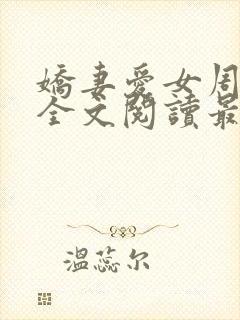 嬌妻愛女周
全文閱讀最
溫蕊尔